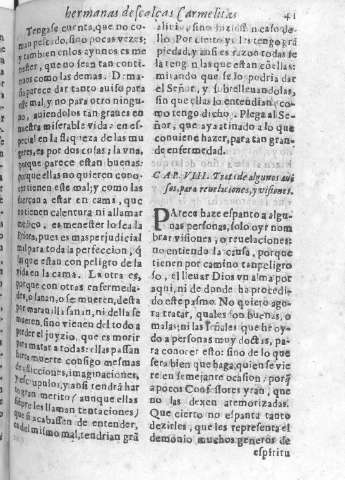 hermanas descalças Carmelitas 41
Tengase cuenta, que no co-
man pescado, sino pocas vezes;
y tambien en los ayunos es me
nester, que no sean tan conti-
nuos como las demas. D: ma-
siada parece dar tanto auiso para
este mal, y no para otro ningu-
no, auiendolos tan graues en
nuestra miserable vida: en es-
pecial en la flaqueza de las mu-
geres, es por dos cosas; la vna,
que parece estan buenas:
porque ellas no quieren cono-
cer tienen este mal; y como las
fuerçan a estar en cama,
que
no tienen calentura ni a llamar
medico, es menester lo sea la
Priora, pues es mas perjudicial
mal para toda la perfeccion, q̃
las que estan con peligro de la
vida en la cama. La otra es,
porque con otras enfermeda-
des, o sanan, o se mueren, desta
por marauilla sanan, ni della se
mueren, sino vienen del todo a
perder el juyzio, que es morir
para matar a todas: ellas passan
harta muerte consigo mesmas
de aflicciones, imaginaciones,
y escrupulos, y ansi tendrà har
to gran merito, aunque ellas
siempre les llaman tentaciones;
que si acabassen de entender,
es del mismo mal, tendrian grã
aliuio, sino hiziessen caso de-
llo. Por cierto yo las tengo grã
piedad, y ansi es razon todas se
la tengan las que estan cõ ellas:
mirando que se lo podria dar
el Señor, y sobrelleuandolas,
sin que ellas lo entiendan, co-
mo tengo dicho. Plega al Se-
ñor, que aya atinado a lo que
conuiene hazer, para tan gran-
de enfermedad.
CAP. VIII. Trata de algunos aui
sos para reuelaciones, y visiones.
PArece haze espanto a algu-
nas personas, solo oyr nom
brar visiones, o reuelaciones:
no entiendo la causa, porque
tienen por camino tan peligro
so, el lleuar Dios vn alma por
aqui, ni de donde ha procedi-
do este pasmo. No quiero ago-
ra tratar, quales son buenas, o
malas; ni las señales que he oy-
do a personas muy doctas, pa-
ra conocer esto: sino de lo que
sera bien que haga, quien se vie
re en semejante ocasion; porq̃
a pocos Confessores yran, que
no las dexen atemorizadas.
Que cierto no espanta tanto
dezirles, que les representa el
demonio muchos generos de
espiritu